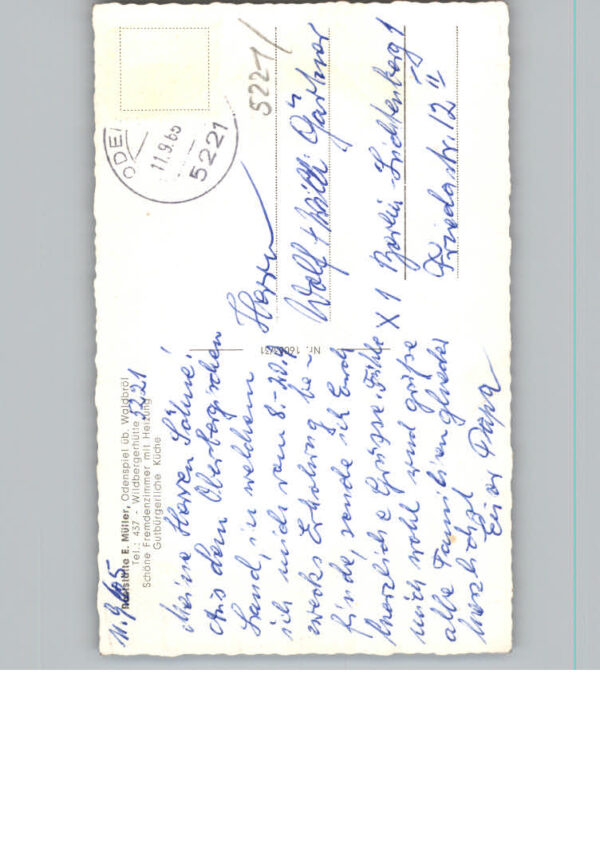 11.9.65
Gaststätte E. Müller, Odenspiel üb. Waldbröl
Tel.: 437 - Wildbergerhütte 5221
Schöne Fremdenzimmer mit Heizung
Gutbürgerliche Küche
Meine Herren Söhne!
Aus dem Oberbergischen
Land, in welchem
ich mich vom 8.-20.9
zwecks Erholung be-
finde, sende ich Euch
herzliche Grüsse. Fühle
mich wohl und grüße
alle Familienglieder
herzlichst
Euer Papa
Nr.
ODE
11.9.65
5221
5221/
Herrn
Wolf + Gärtner
X 1 Berlin-Lichtenberg 1
Friedastr. 12 II